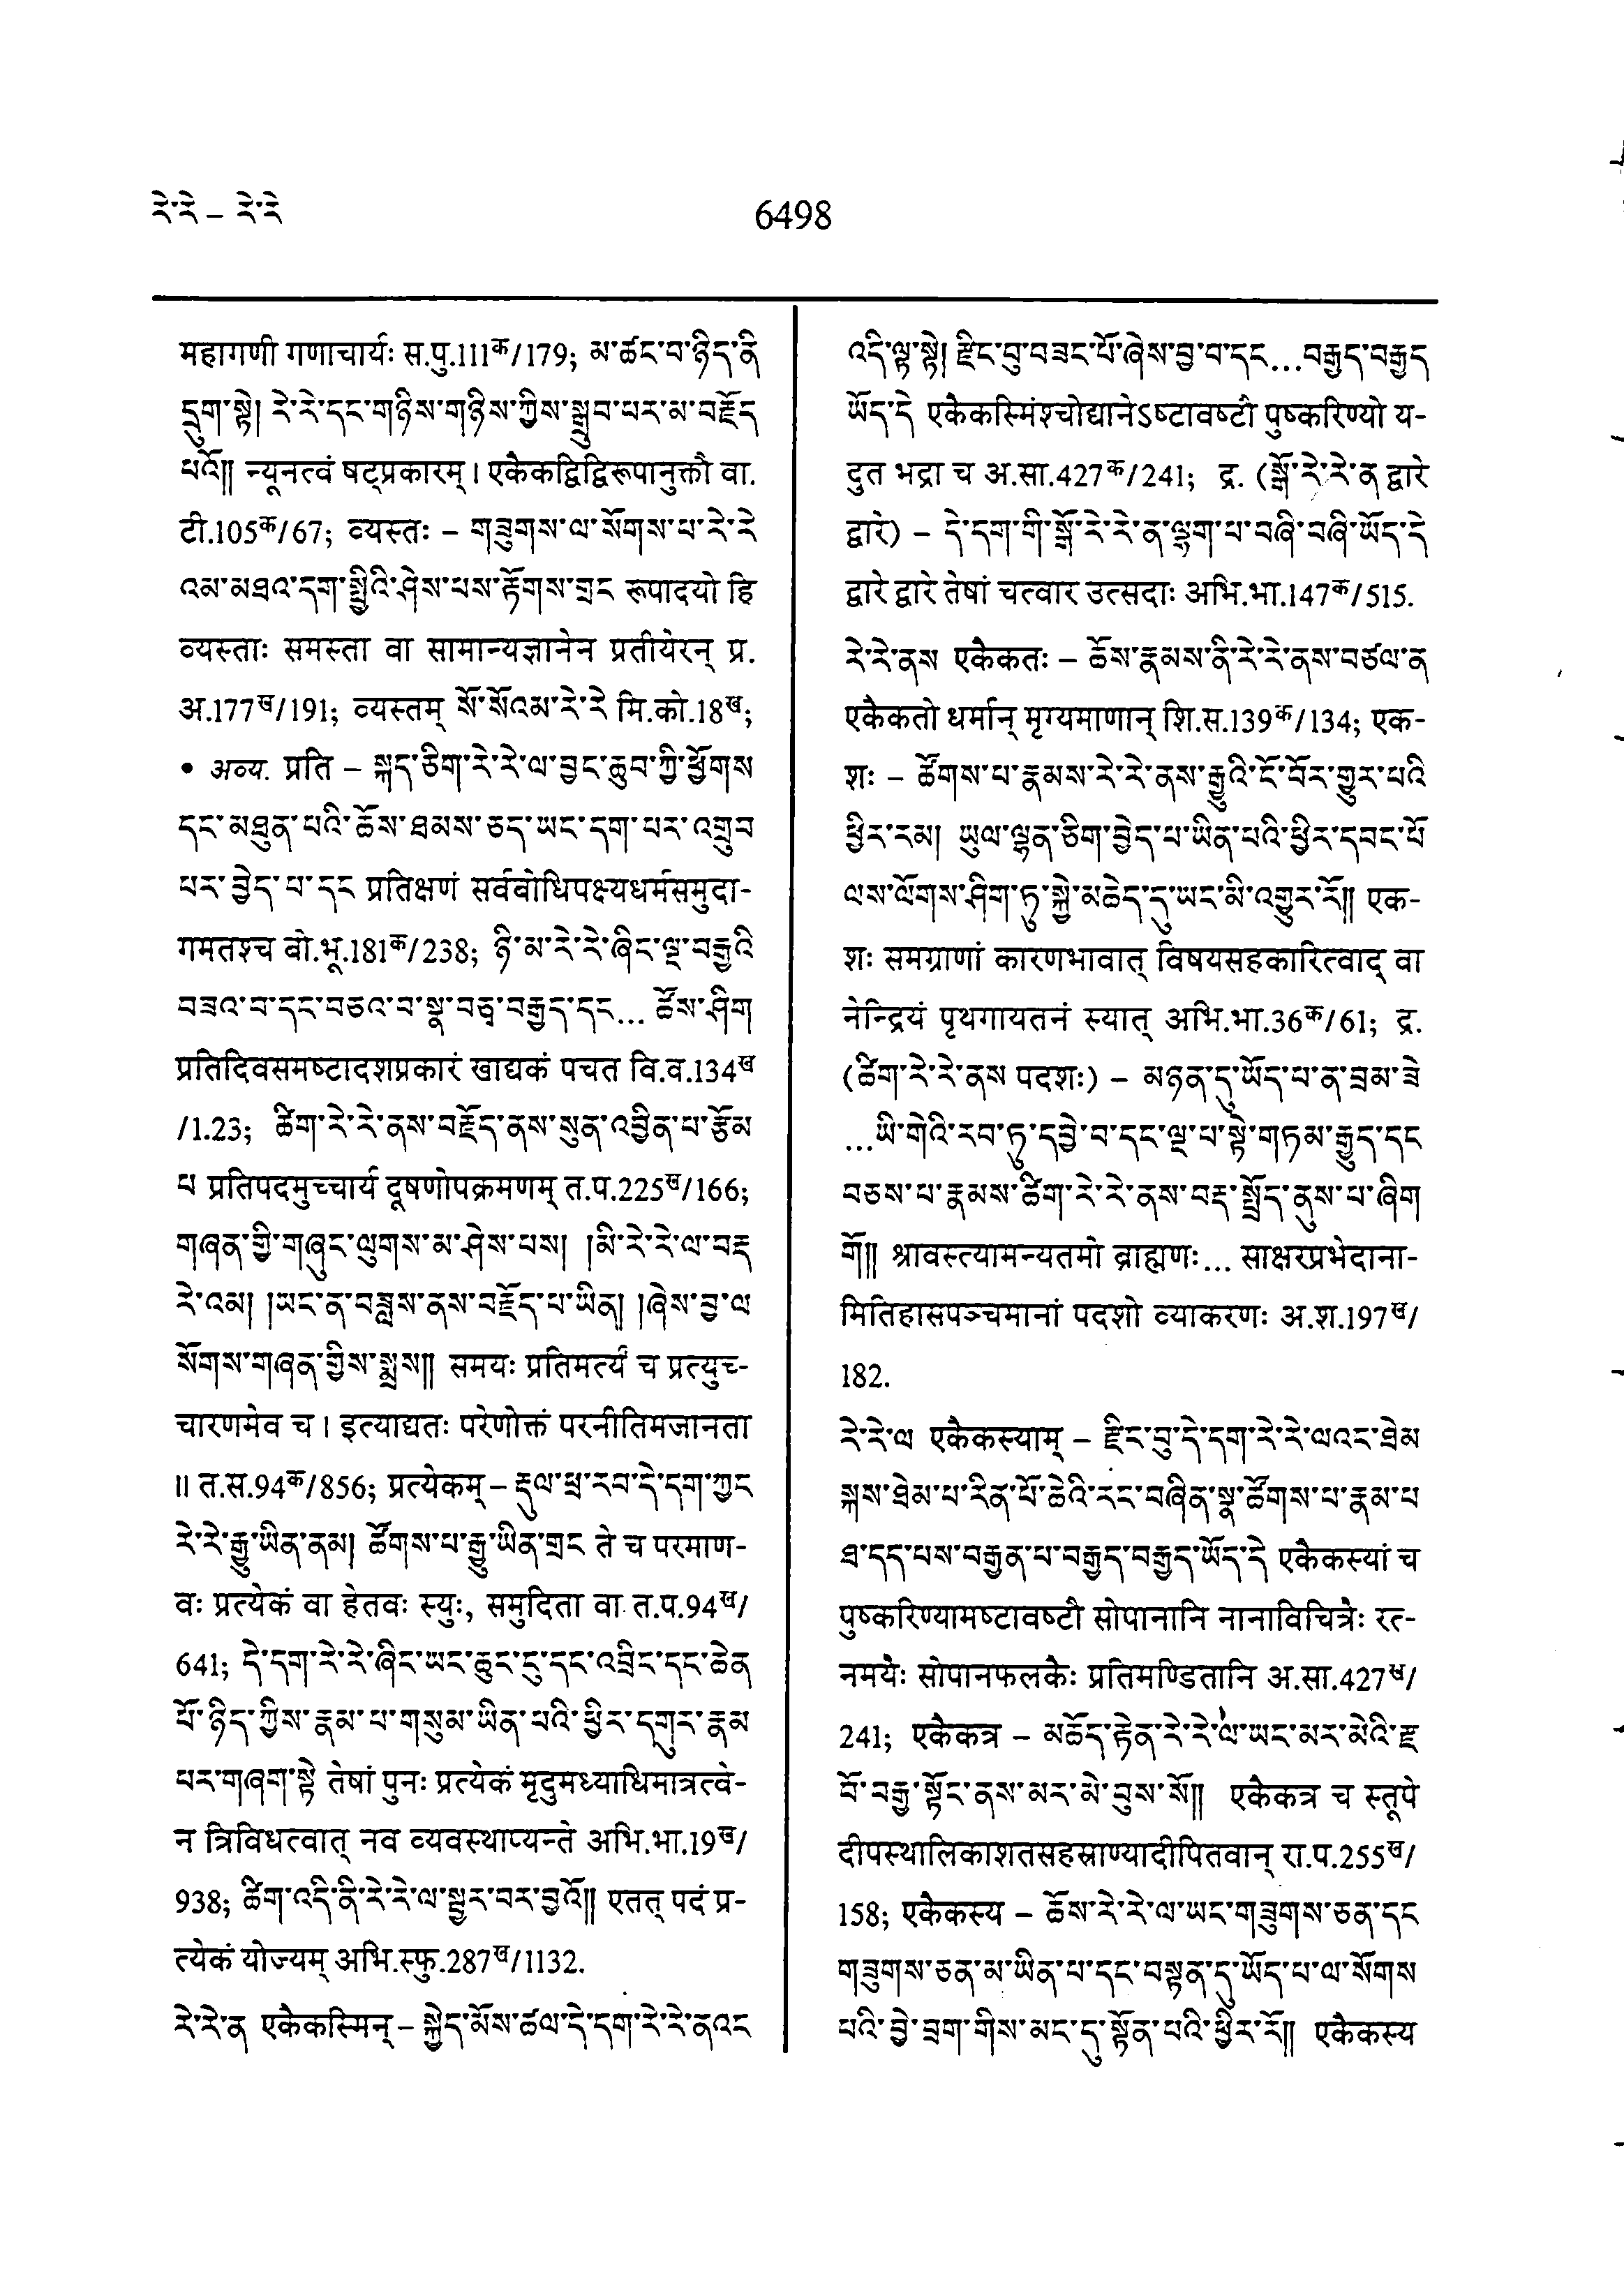 རེ་རེ – རེ་རེ
6498
महागणी गणाचार्यः स.पु.111क/179; མ་ཚང་བ་ཉིད་ནི
དྲུག་སྟེ། རེ་རེ་དང་གཉིས་གཉིས་ཀྱིས་སྒྲུབ་པར་མ་བརྗོད
པའོ༎ न्यूनत्वं षट्प्रकारम् । एकैकद्विद्विरूपानुक्तौ वा.
टी.105क/67; व्यस्तः – གཟུགས་ལ་སོགས་པ་རེ་རེ
འམ་མཐའ་དག་སྤྱིའི་ཤེས་པས་རྟོགས་གྲང रूपादयो हि
व्यस्ताः समस्ता वा सामान्यज्ञानेन प्रतीयेरन् प्र.
अ.177ख/191; व्यस्तम् སོ་སོའམ་རེ་རེ मि.को.18ख;
• अव्य. प्रति – སྐད་ཅིག་རེ་རེ་ལ་བྱང་ཆུབ་ཀྱི་ཕྱོགས
དང་མཐུན་པའི་ཆོས་ཐམས་ཅད་ཡང་དག་པར་འགྲུབ
པར་བྱེད་པ་དང प्रतिक्षणं सर्वबोधिपक्ष्यधर्मसमुदा-
गमतश्च बो.भू.181क/238; ཉི་མ་རེ་རེ་ཞིང་ལྔ་བརྒྱའི
བཟའ་བ་དང་བཅའ་བ་སྣ་བཅྭ་བརྒྱད་དང... ཚོས་ཤིག
प्रतिदिवसमष्टादशप्रकारं खाद्यकं पचत वि.व.134ख
/1.23; ཚིག་རེ་རེ་ནས་བརྗོད་ནས་སུན་འབྱིན་པ་རྩོམ
པ प्रतिपदमुच्चार्य दूषणोपक्रमणम् त.प.225ख/166;
གཞན་གྱི་གཞུང་ལུགས་མ་ཤེས་པས། །མི་རེ་རེ་ལ་བརྡ
རེ་འམ། །ཡང་ན་བཟླས་ནས་བརྗོད་པ་ཡིན། །ཞེས་བྱ་ལ
སོགས་གཞན་གྱིས་སྨྲས༎ समयः प्रतिमर्त्यं च प्रत्युच्-
चारणमेव च । इत्याद्यतः परेणोक्तं परनीतिमजानता
॥ त.स.94क/856; प्रत्येकम् – རྡུལ་ཕྲ་རབ་དེ་དག་ཀྱང
རེ་རེ་རྒྱུ་ཡིན་ནམ། ཚོགས་པ་རྒྱུ་ཡིན་གྲང ते च परमाण-
वः प्रत्येकं वा हेतवः स्युः, समुदिता वा त.प.94ख/
641; དེ་དག་རེ་རེ་ཞིང་ཡང་ཆུང་ངུ་དང་འབྲིང་དང་ཆེན
པོ་ཉིད་ཀྱིས་རྣམ་པ་གསུམ་ཡིན་པའི་ཕྱིར་དགུར་རྣམ
པར་གཞག་སྟེ तेषां पुनः प्रत्येकं मृदुमध्याधिमात्रत्वे-
न त्रिविधत्वात् नव व्यवस्थाप्यन्ते अभि.भा.19ख/
938; ཚིག་འདི་ནི་རེ་རེ་ལ་སྦྱར་བར་བྱའོ༎ एतत् पदं प्र-
त्येकं योज्यम् अभि.स्फु.287ख/1132.
རེ་རེ་ན एकैकस्मिन् – སྐྱེད་མོས་ཚལ་དེ་དག་རེ་རེ་ནའང
འདི་ལྟ་སྟེ། རྫིང་བུ་བཟང་པོ་ཞེས་བྱ་བ་དང...བརྒྱད་བརྒྱད
ཡོད་དེ एकैकस्मिंश्चोद्यानेऽष्टावष्टौ पुष्करिण्यो य-
दुत भद्रा च अ.सा.427क/241; द्र. (སྒོ་རེ་རེ་ན द्वारे
द्वारे) – དེ་དག་གི་སྒོ་རེ་རེ་ན་ལྷག་པ་བཞི་བཞི་ཡོད་དེ
द्वारे द्वारे तेषां चत्वार उत्सदाः अभि.भा.147क/515.
རེ་རེ་ནས एकैकतः – ཆོས་རྣམས་ནི་རེ་རེ་ནས་བཙལ་ན
एकैकतो धर्मान् मृग्यमाणान् शि.स.139क/134; एक-
शः – ཚོགས་པ་རྣམས་རེ་རེ་ནས་རྒྱུའི་ངོ་བོར་གྱུར་པའི
ཕྱིར་རམ། ཡུལ་ལྷན་ཅིག་བྱེད་པ་ཡིན་པའི་ཕྱིར་དབང་པོ
ལས་ལོགས་ཤིག་ཏུ་སྐྱེ་མཆེད་དུ་ཡང་མི་འགྱུར་རོ༎ एक-
शः समग्राणां कारणभावात् विषयसहकारित्वाद् वा
नेन्द्रियं पृथगायतनं स्यात् अभि.भा.36क/61; द्र.
(ཚིག་རེ་རེ་ནས पदशः) – མཉན་དུ་ཡོད་པ་ན་བྲམ་ཟེ
...ཡི་གེའི་རབ་ཏུ་དབྱེ་བ་དང་ལྔ་པ་སྟེ་གཏམ་རྒྱུད་དང
བཅས་པ་རྣམས་ཚིག་རེ་རེ་ནས་བརྡ་སྤྲོད་ནུས་པ་ཞིག
གོ༎ श्रावस्त्यामन्यतमो ब्राह्मणः... साक्षरप्रभेदाना-
मितिहासपञ्चमानां पदशो व्याकरणः अ.श.197ख/
182.
རེ་རེ་ལ एकैकस्याम् – རྫིང་བུ་དེ་དག་རེ་རེ་ལའང་ཐེམ
སྐས་ཐེམ་པ་རིན་པོ་ཆེའི་རང་བཞིན་སྣ་ཚོགས་པ་རྣམ་པ
ཐ་དད་པས་བརྒྱན་པ་བརྒྱད་བརྒྱད་ཡོད་དེ एकैकस्यां च
पुष्करिण्यामष्टावष्टौ सोपानानि नानाविचित्रैः रत्-
नमयैः सोपानफलकैः प्रतिमण्डितानि अ.सा.427ख/
241; एकैकत्र – མཆོད་རྟེན་རེ་རེ་ལ་ཡང་མར་མེའི་རྫ
བོ་བརྒྱ་སྟོང་ནས་མར་མེ་བུས་སོ༎ एकैकत्र च स्तूपे
दीपस्थालिकाशतसहस्राण्यादीपितवान् रा.प.255ख/
158; एकैकस्य – ཆོས་རེ་རེ་ལ་ཡང་གཟུགས་ཅན་དང
གཟུགས་ཅན་མ་ཡིན་པ་དང་བསྟན་དུ་ཡོད་པ་ལ་སོགས
པའི་བྱེ་བྲག་གིས་མང་དུ་སྟོན་པའི་ཕྱིར་རོ༎ एकैकस्य